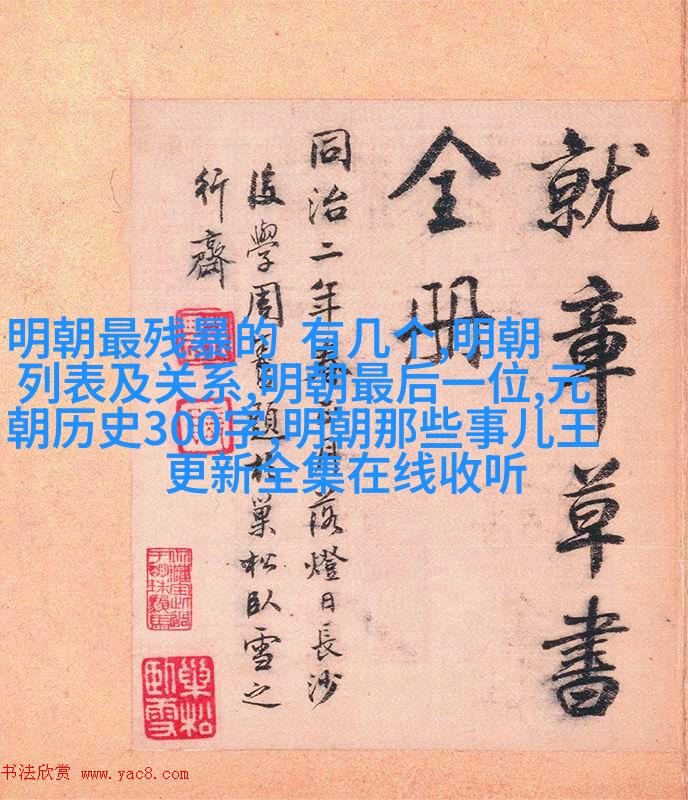 明朝最残暴的 有几个,明朝
列表及关系,明朝最后一位,元
朝历史300字,明朝那些事儿王
更新全集在线收听
就章草書
全册
同治二年月落燈日長沙
後學周題於巢松臥雪之
行齋
巢松臥雪
书法欣赏 www.yac8.com